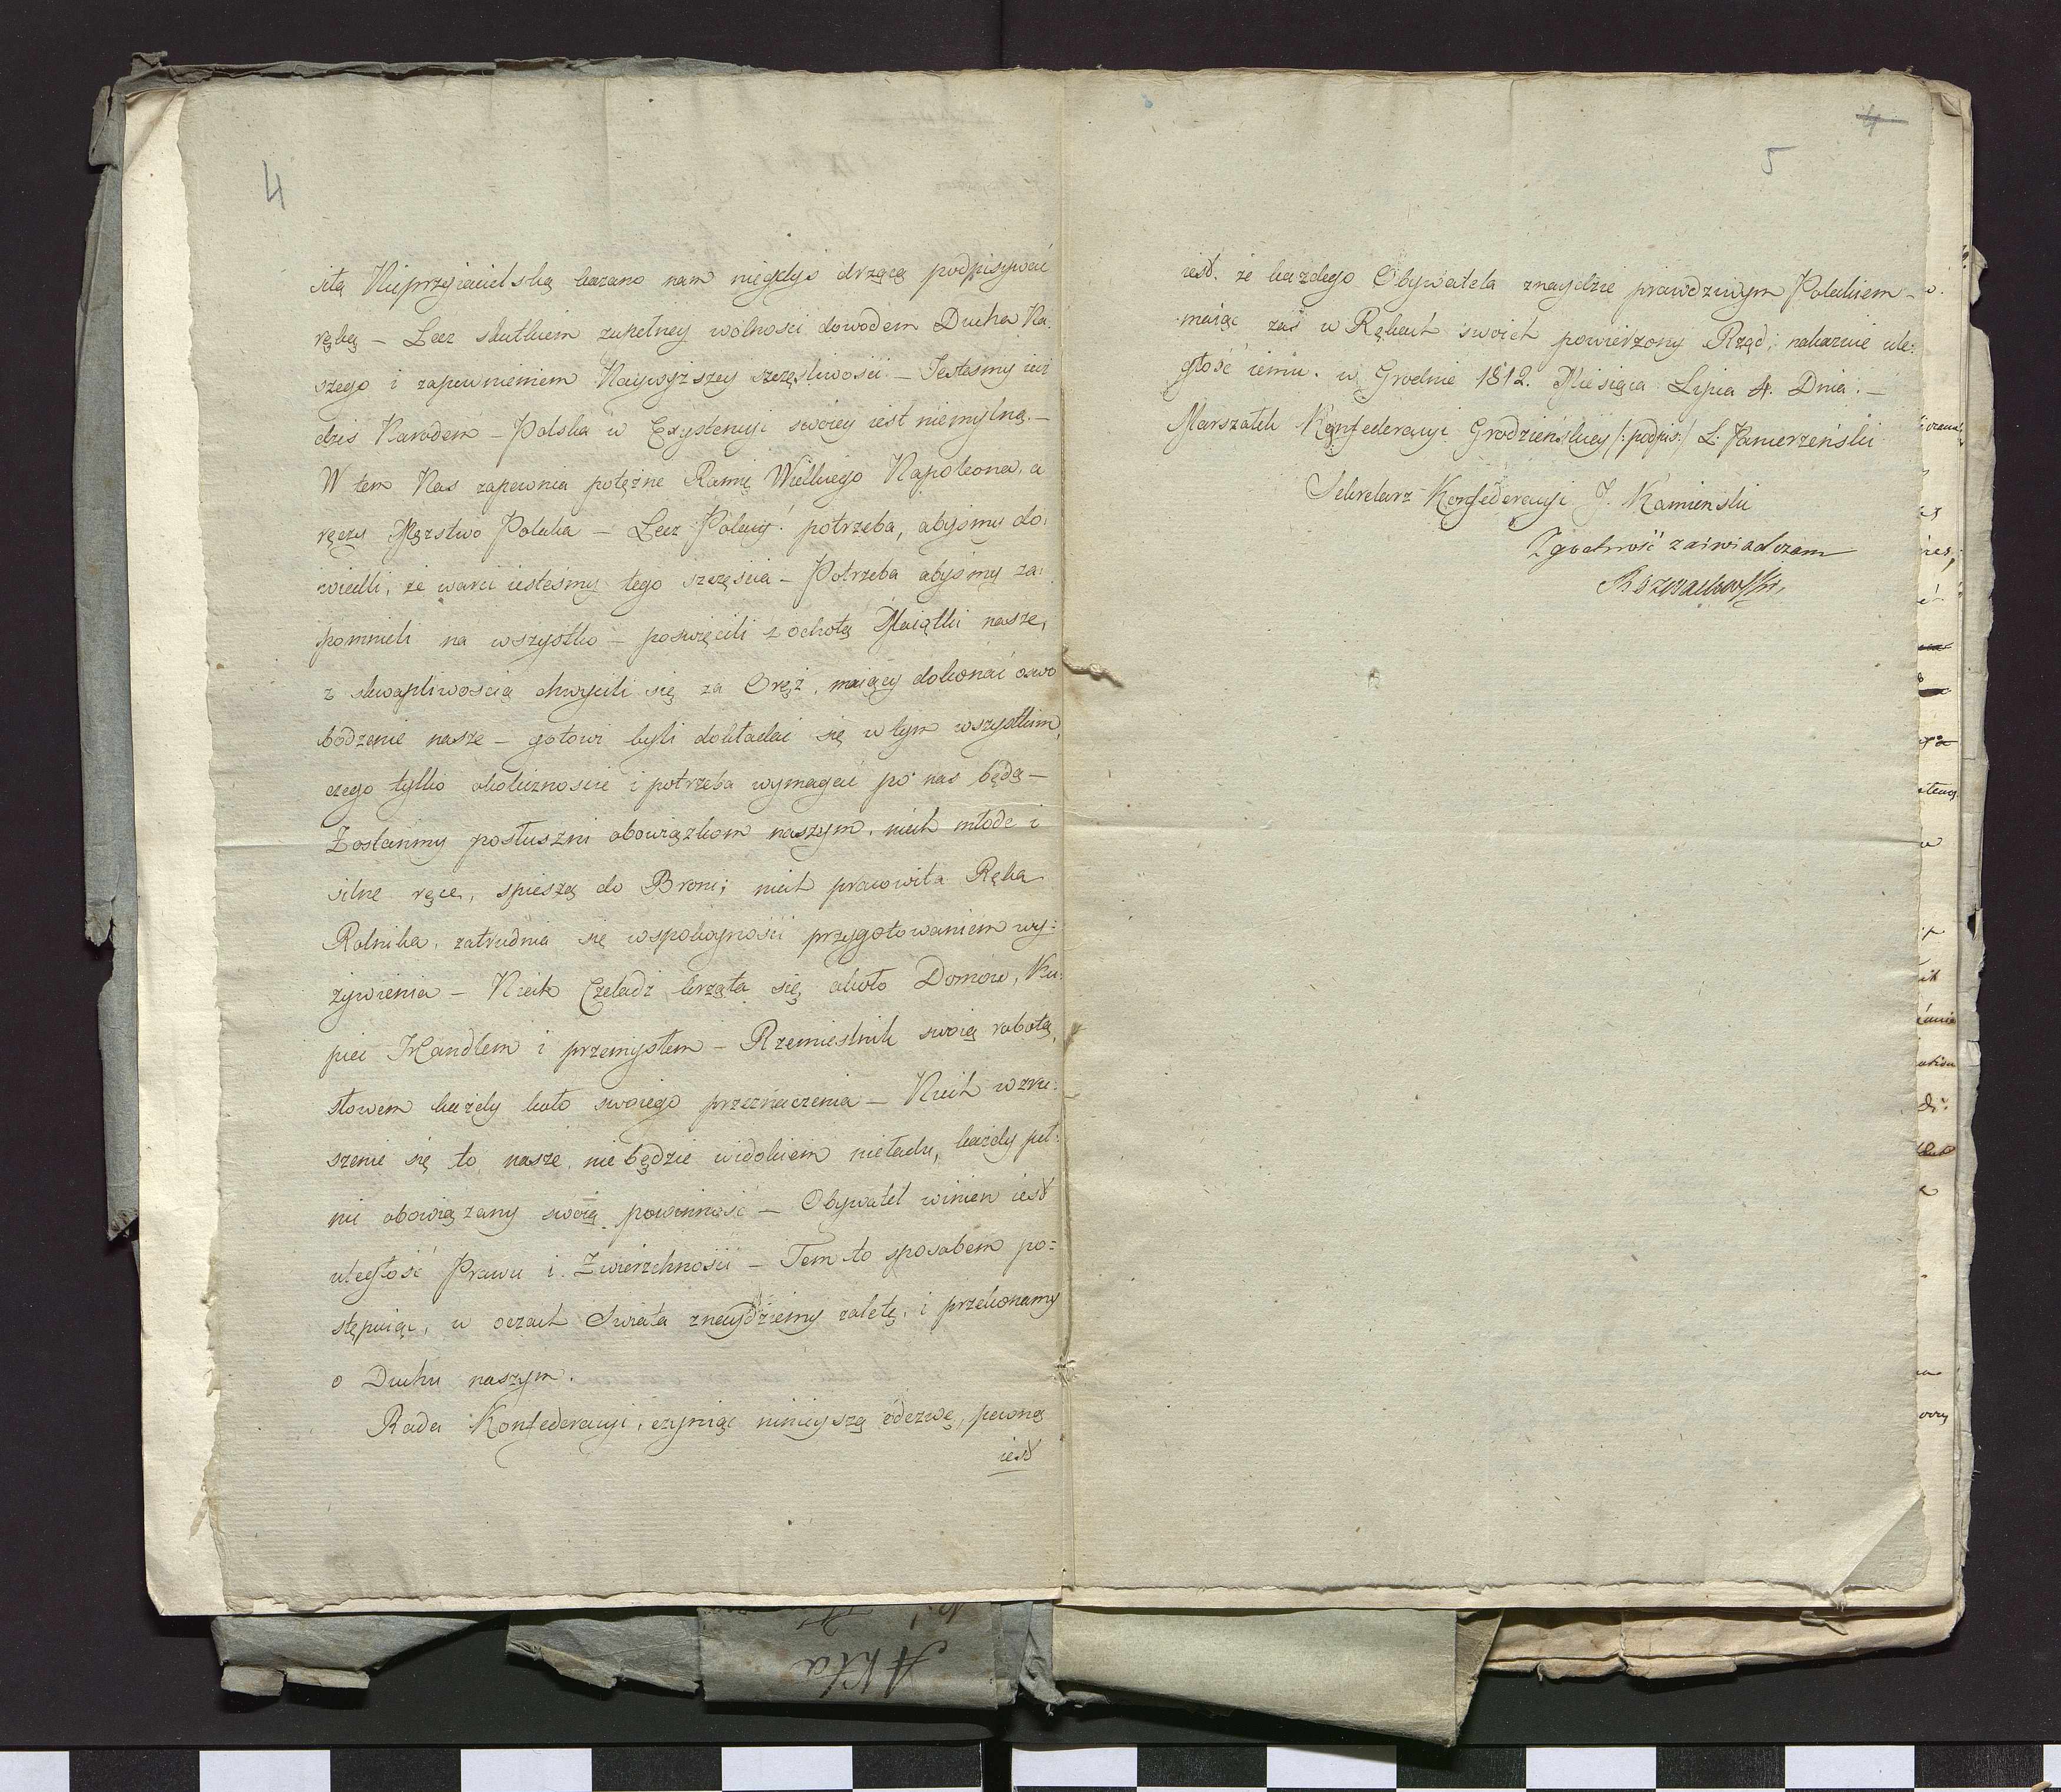 4
siłą Nieprzyiacielską kazano nam niegdyś drzącą podpisywać
ręką – Lecz skutkiem zupełney wolności dowodem Ducha Na:
szego i zapewnieniem Naywyższey szczęśliwości – Jesteśmy iuż
dziś Narodem – Polska w Exystencyi swoiey iest niemylną. –
W tem Nas zapewnia potężne Ramię Wielkiego Napoleona, a
ręczy Męztwo Polaka – Lecz Polacy! potrzeba, abyśmy do:
wiedli, że warci iesteśmy tego szczęścia – Potrzeba abyśmy za:
pomnieli na wszystko – poświęcili z ochotą Maiątki nasze,
z skwapliwością chwycili się za Oręż, maiący dokonać oswo
bodzenie nasze – gotowi byli dokładać się w tym wszystkim,
czego tylko okoliczności i potrzeba wymagać po nas będą –
Zostańmy posłuszni obowiązkom naszym, niech młode i
silne ręce, spieszą do Broni; niech pracowita Ręka
Rolnika, zatrudnia się wspokoyności przygotowaniem wy:
żywienia – Niech Czeladź krząta się około Domów, Ku:
piec Handlem i przemysłem – Rzemieślnik swoią robotą,
słowem każdy koło swoiego przeznaczenia – Niech wzru:
szenie się to nasze, nie będzie widokiem nieładu, każdy peł:
nić obowiązany swoią powinność – Obywatel winien iest
uległość Prawu i Zwierzchności – Tem to sposobem po=
stępuiąc, w oczach Świata znaydziemy zaletę, i przekonamy
o Duchu naszym.
Rada Konfederacyi, czyniąc ninieyszą odezwę, pewną
iest
4
5
iest, że każdego Obywatela znaydzie prawdziwym Polakiem –
maiąc zaś w Rękach swoich powierzony Rząd, nakazuie ule:
głość iemu. w Grodnie 1812. Miesiąca Lipca 4. Dnia. –
Marszałek Konfederacyi Grodzieńskiey /:podpis:/ L: Pancerzeński
Sekretarz Konfederacyi J. Kamienski
Zgodność zaświadczam
Akta